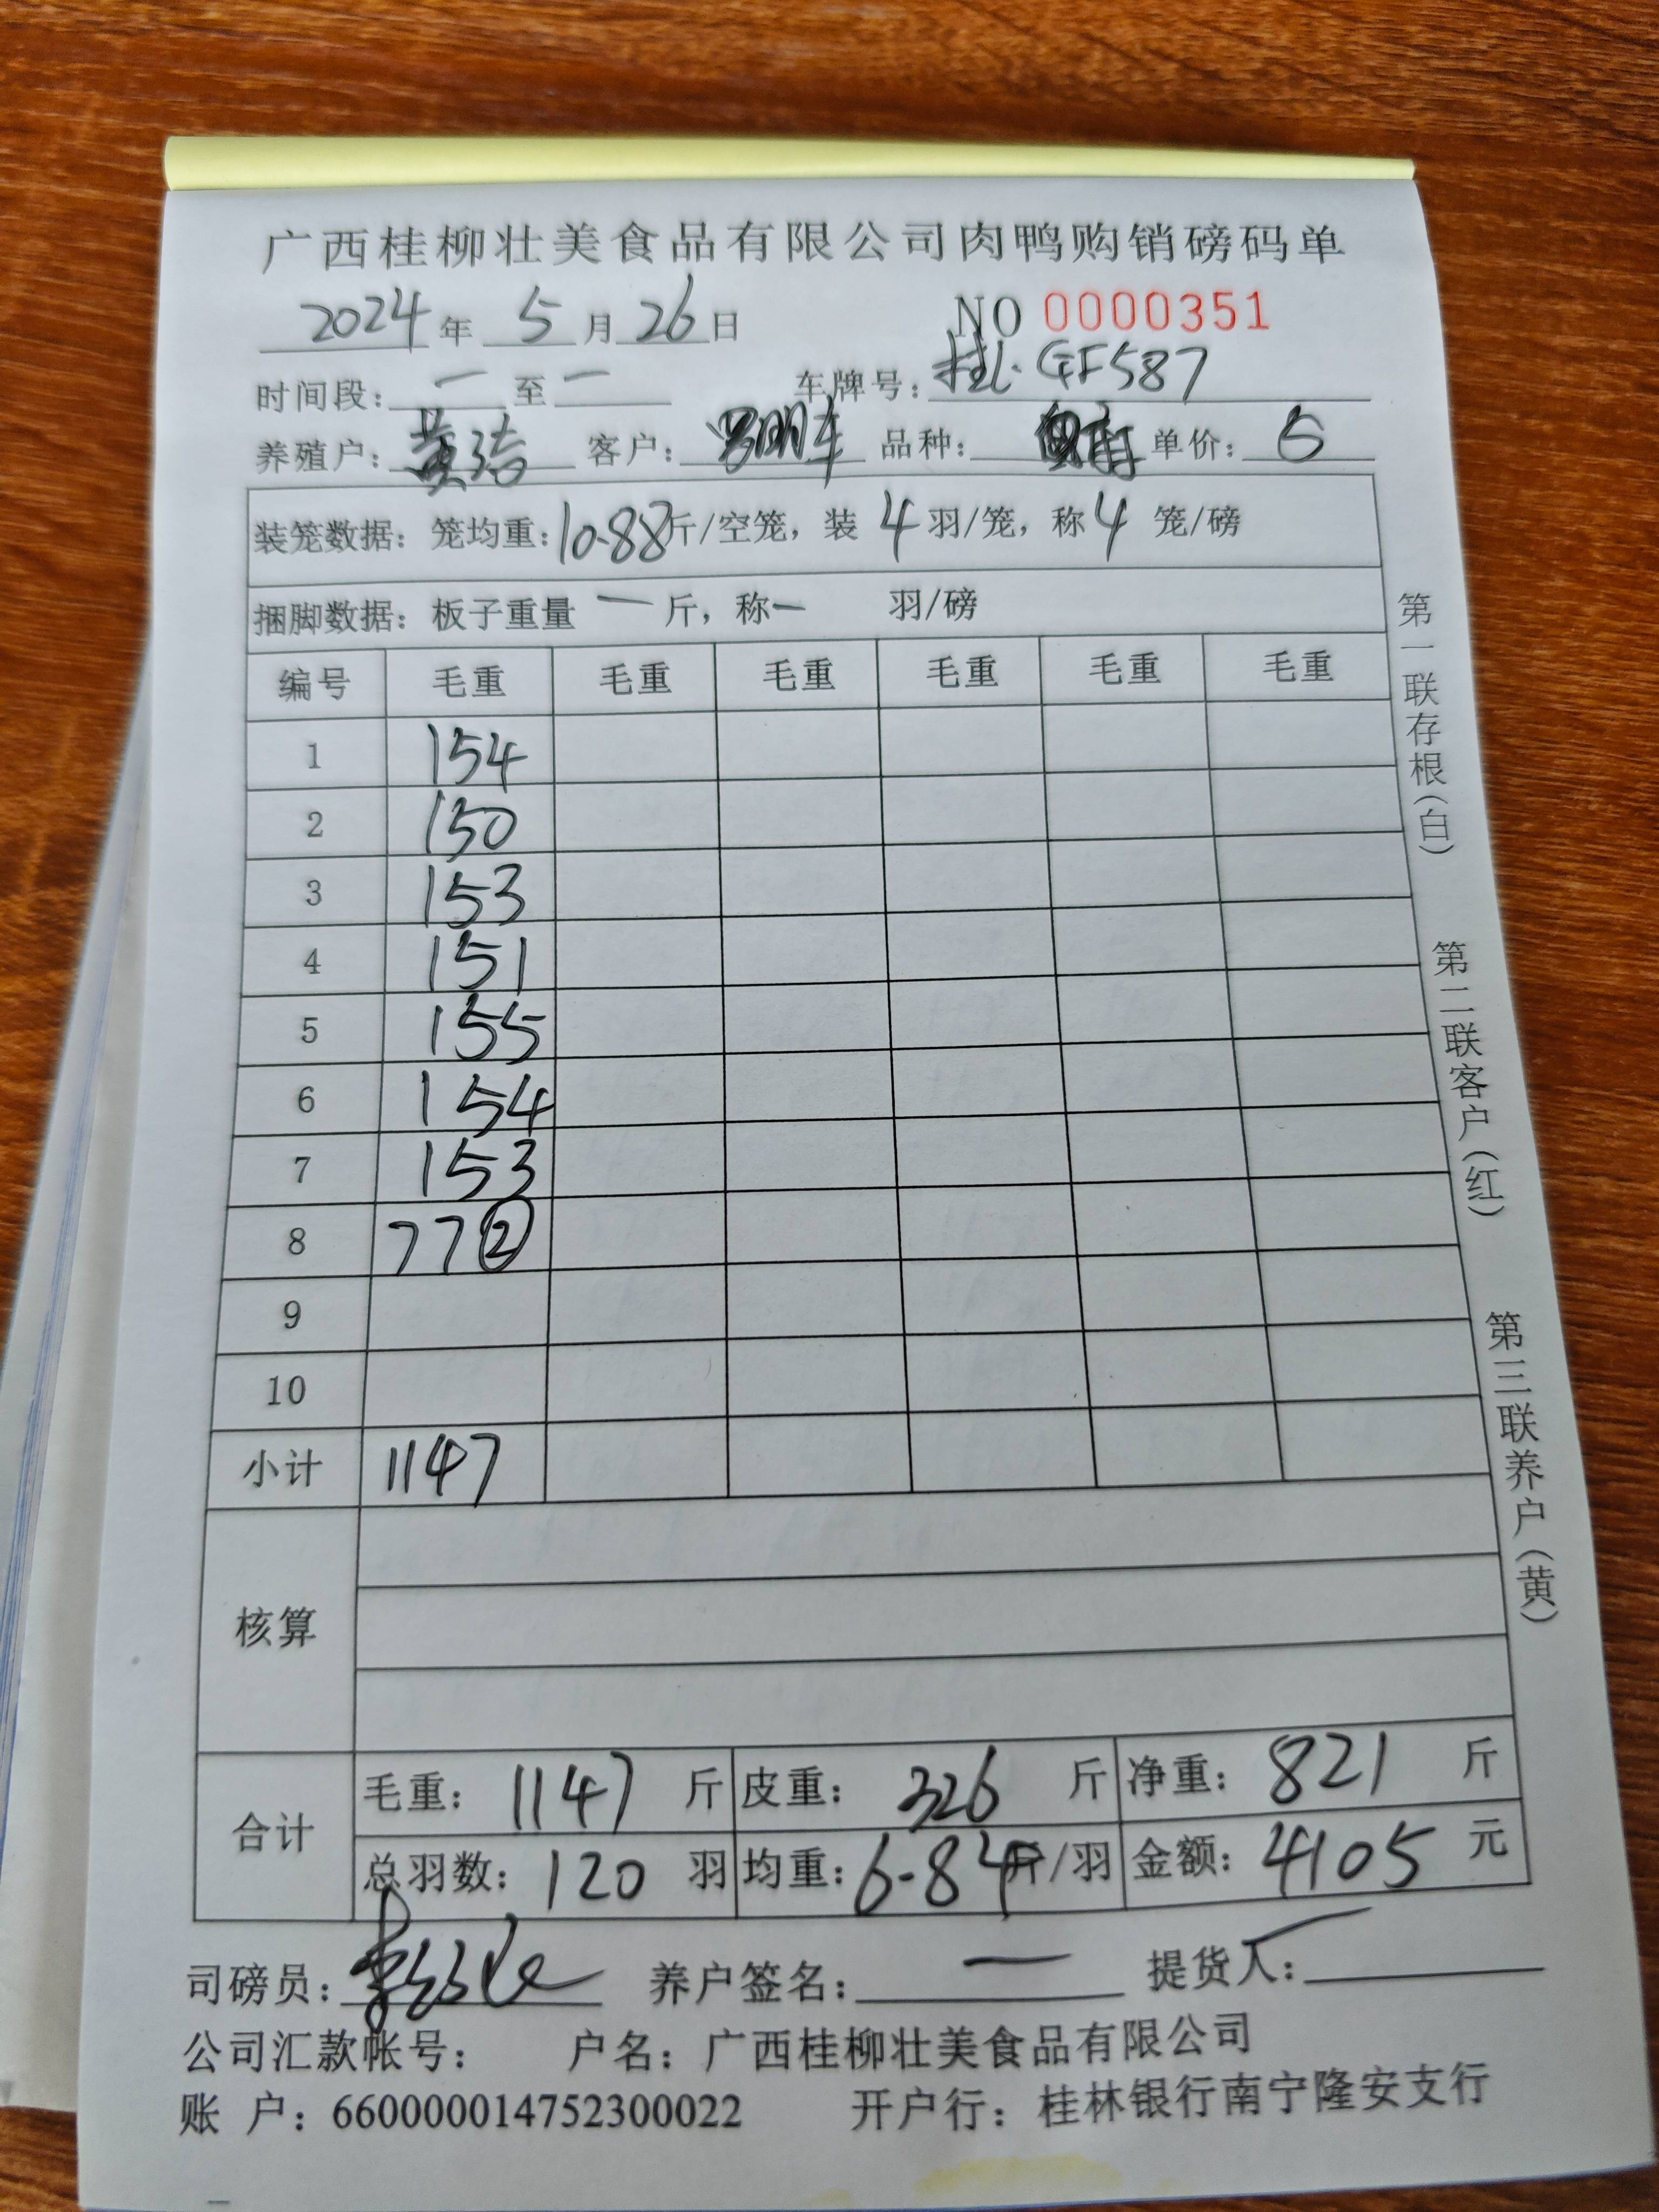 广西桂柳壮美食品有限公司肉鸭购销磅码单
2024年 5月26日 NO 0000351
时间段：一至一 车牌号：桂L·GF587
养殖户： 客户：罗明车 品种： 单价：5
装笼数据：笼均重：10.88斤/空笼，装 4 羽/笼，称 4 笼/磅
捆脚数据：板子重量 一 斤，称一 羽/磅
编号 毛重 毛重 毛重 毛重 毛重 毛重
1 154
2 150
3 153
4 151
5 155
6 154
7 153
8 77②
9
10
小计 1147
核算
合计 毛重：1147斤 皮重：326斤 净重：821斤
总羽数：120羽 均重：6.84斤/羽 金额：4105元
司磅员： 养户签名：一 提货人：
公司汇款帐号： 户名：广西桂柳壮美食品有限公司
账 户：660000014752300022 开户行：桂林银行南宁隆安支行
第一联存根（白） 第二联客户（红） 第三联养户（黄）